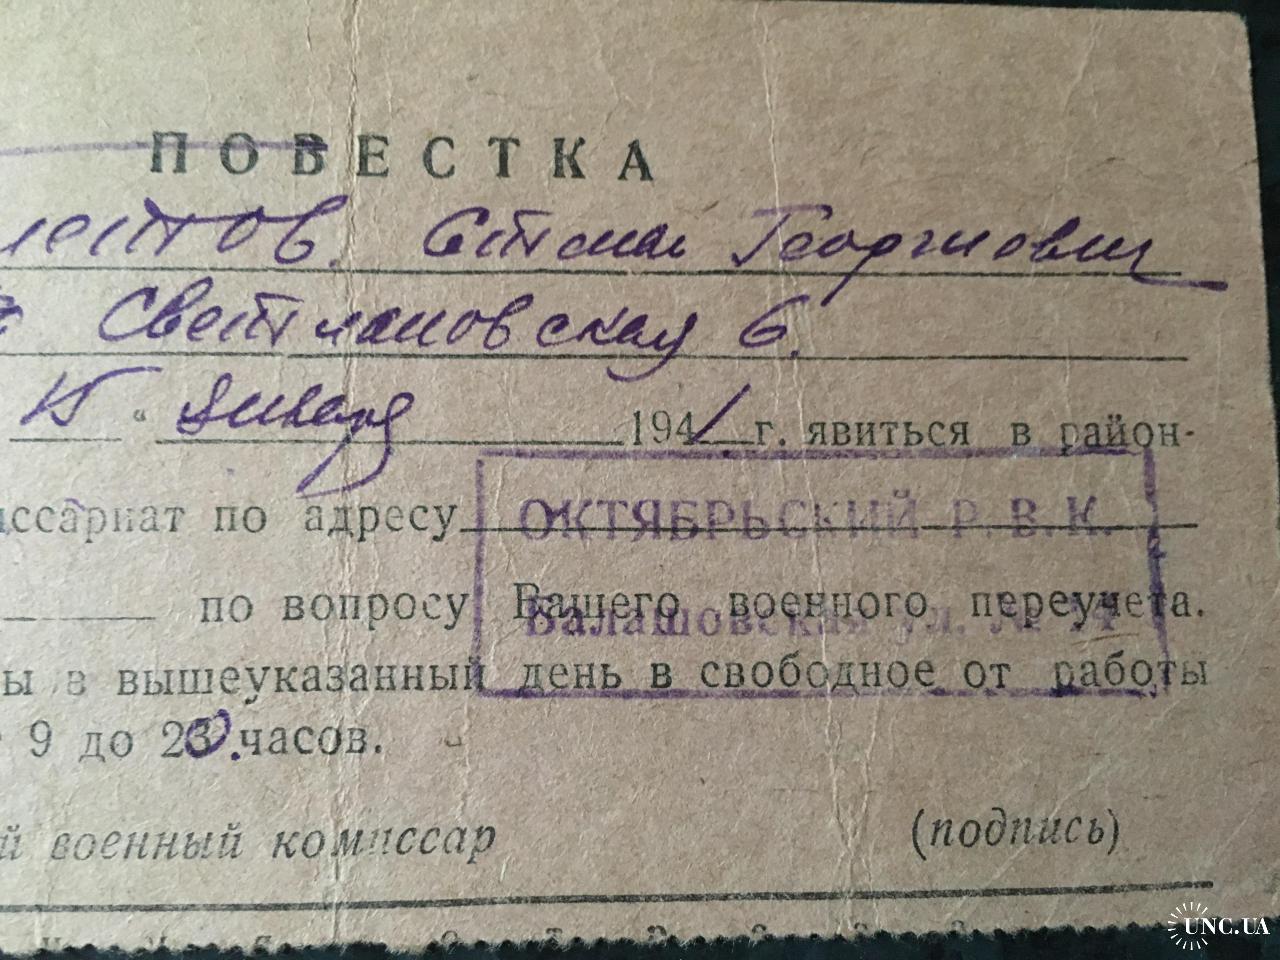 ПОВЕСТКА
Степан Георгиевич
Светлановская 6.
15 " января 1941 г. явиться в район-
ссариат по адресу
ОКТЯБРЬСКИЙ Р.В.К.
по вопросу Вашего военного переучета.
Балашовская ул. №
ы в вышеуказанный день в свободное от работы
9 до 20 часов.
й военный комиссар (подпись)
UNC.UA